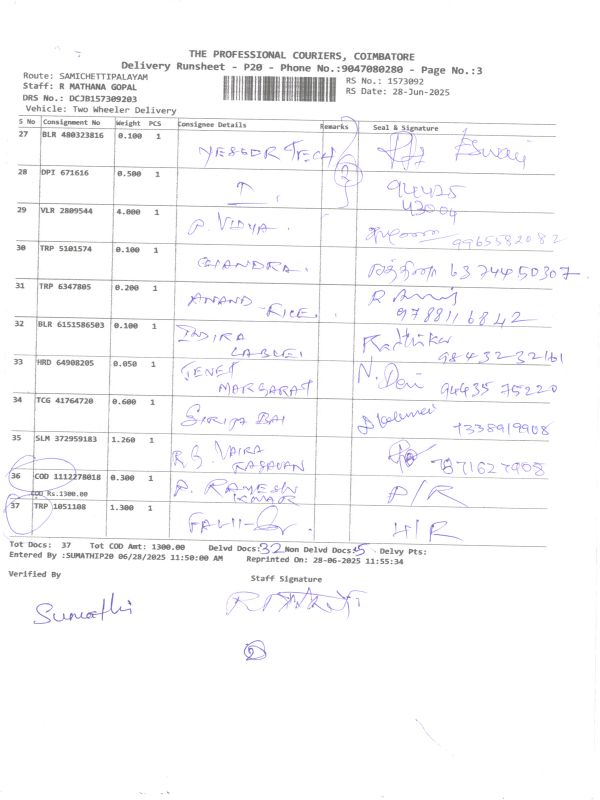 THE PROFESSIONAL COURIERS, COIMBATORE
Delivery Runsheet - P20 - Phone No.:9047080280 - Page No.:3
Route: SAMICHETTIPALAYAM
RS No.: 1573092
Staff: R MATHANA GOPAL
RS Date: 28-Jun-2025
DRS No.: DCJB157309203
Vehicle: Two Wheeler Delivery
S No Consignment No Weight PCS Consignee Details Remarks Seal & Signature
27 BLR 480323816 0.100 1 TECH
28 DPI 671616 0.500 1 94425
43004
29 VLR 2809544 4.000 1 P. VIDYA. 9965582082
30 TRP 5101574 0.100 1 CHANDRA. 6374450307
31 TRP 6347805 0.200 1 ANAND RICE.
9788116842
32 BLR 6151586503 0.100 1 INDIRA
9843232161
33 HRD 64908205 0.050 1 JENET
MARGARAT N. Devi 9443575220
34 TCG 41764720 0.600 1 BAI
7338919908
35 SLM 372959183 1.260 1 R.G. VAIRA
7871627908
36 COD 1112278018 0.300 1 P. RAMESH KUMAR P/R
COD Rs.1300.00
37 TRP 1051108 1.300 1 H/R
Tot Docs: 37 Tot COD Amt: 1300.00 Delvd Docs: 32 Non Delvd Docs: 5 Delvy Pts:
Entered By :SUMATHIP20 06/28/2025 11:50:00 AM Reprinted On: 28-06-2025 11:55:34
Verified By
Staff Signature
Sumathi
2